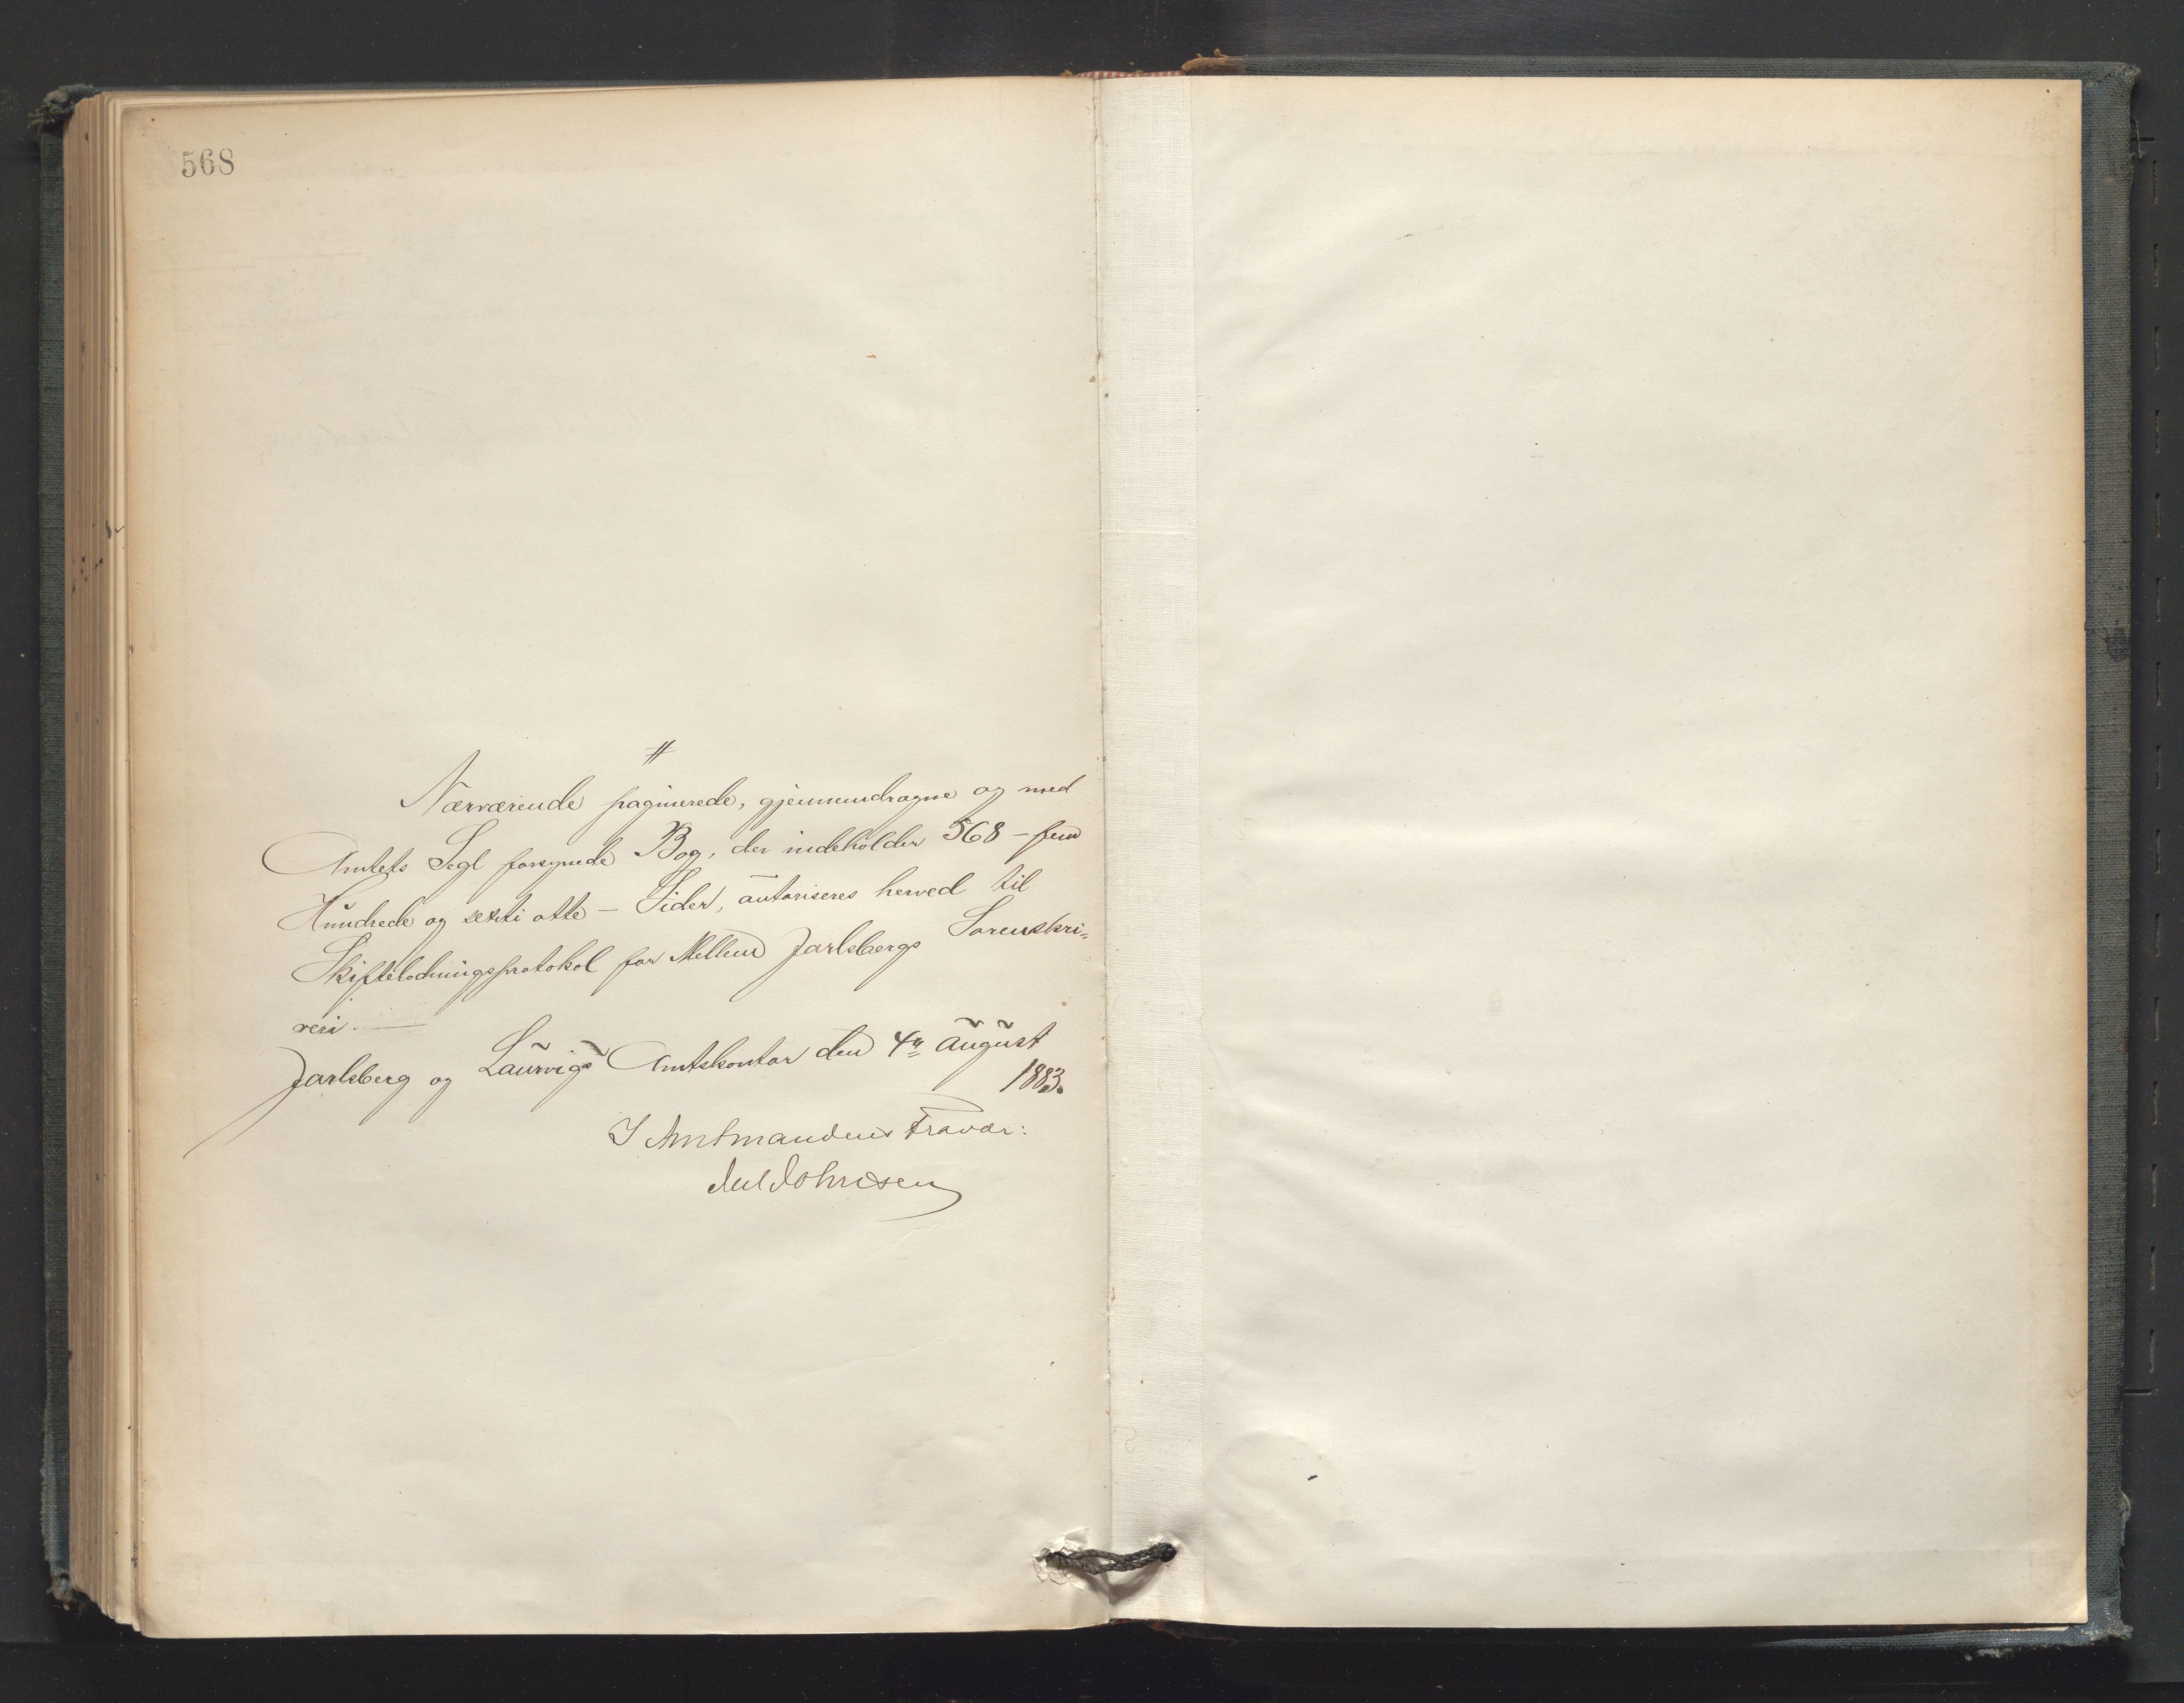 568
#
Nærværende paginerede, gjennemdragne og med
Amtets Segl forsynede Bog, der indeholder 568 – fem
Hundrede og sexti otte – Sider, autoriseres herved til
Skifteloddningsprotokol for Mellem Jarlsbergs Sorenskri-
veri. —
Jarlsberg og Laurvigs Amtskontor den 4de august
1883.
I Amtmandens Fravær:
Johnsen